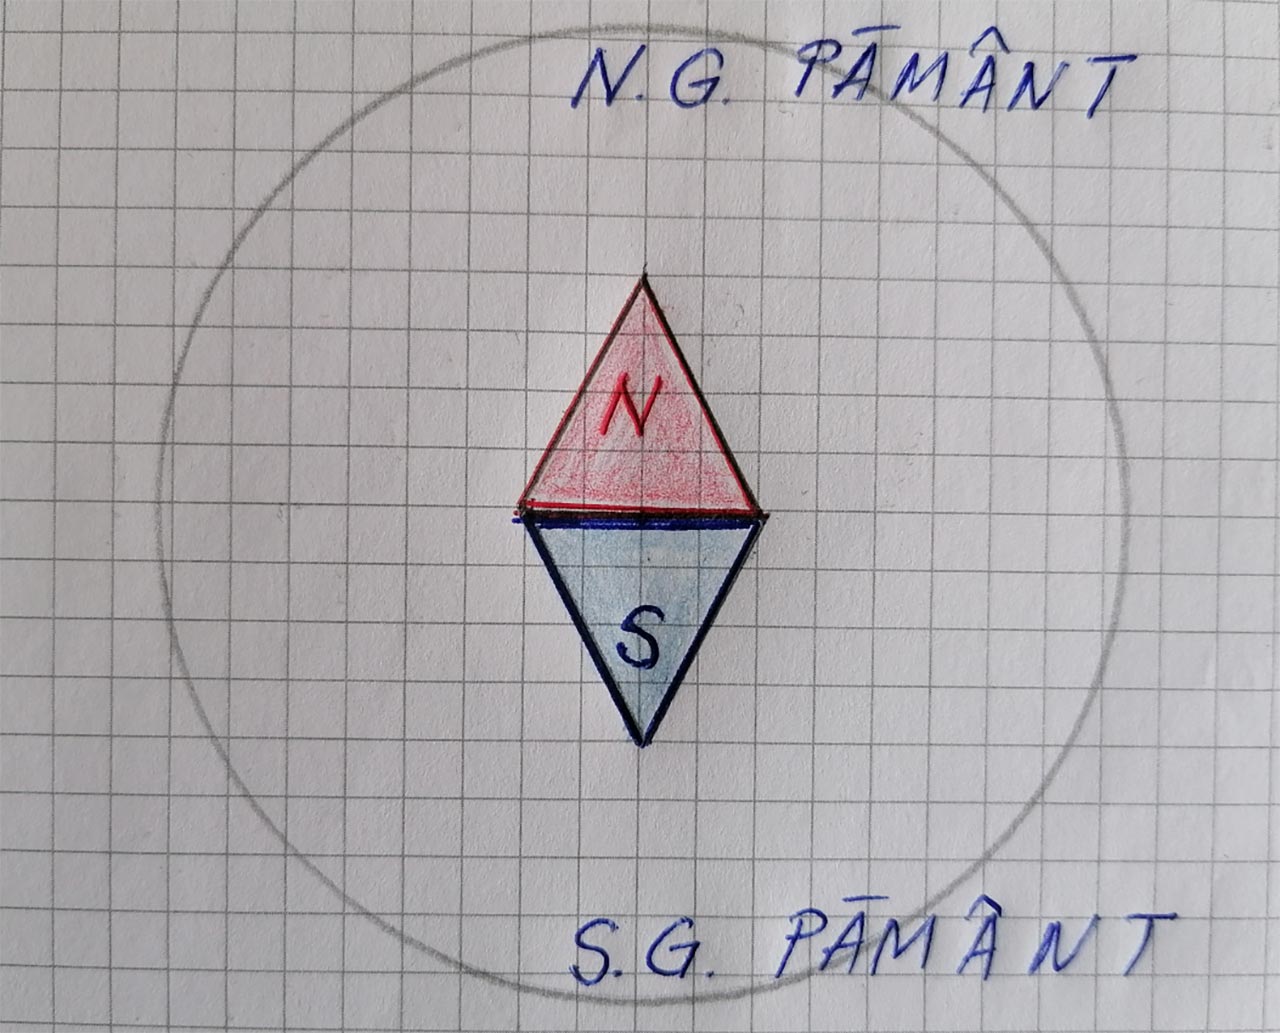 N.G. PĀMÂNT
N
S
S.G. PĀMÂNT